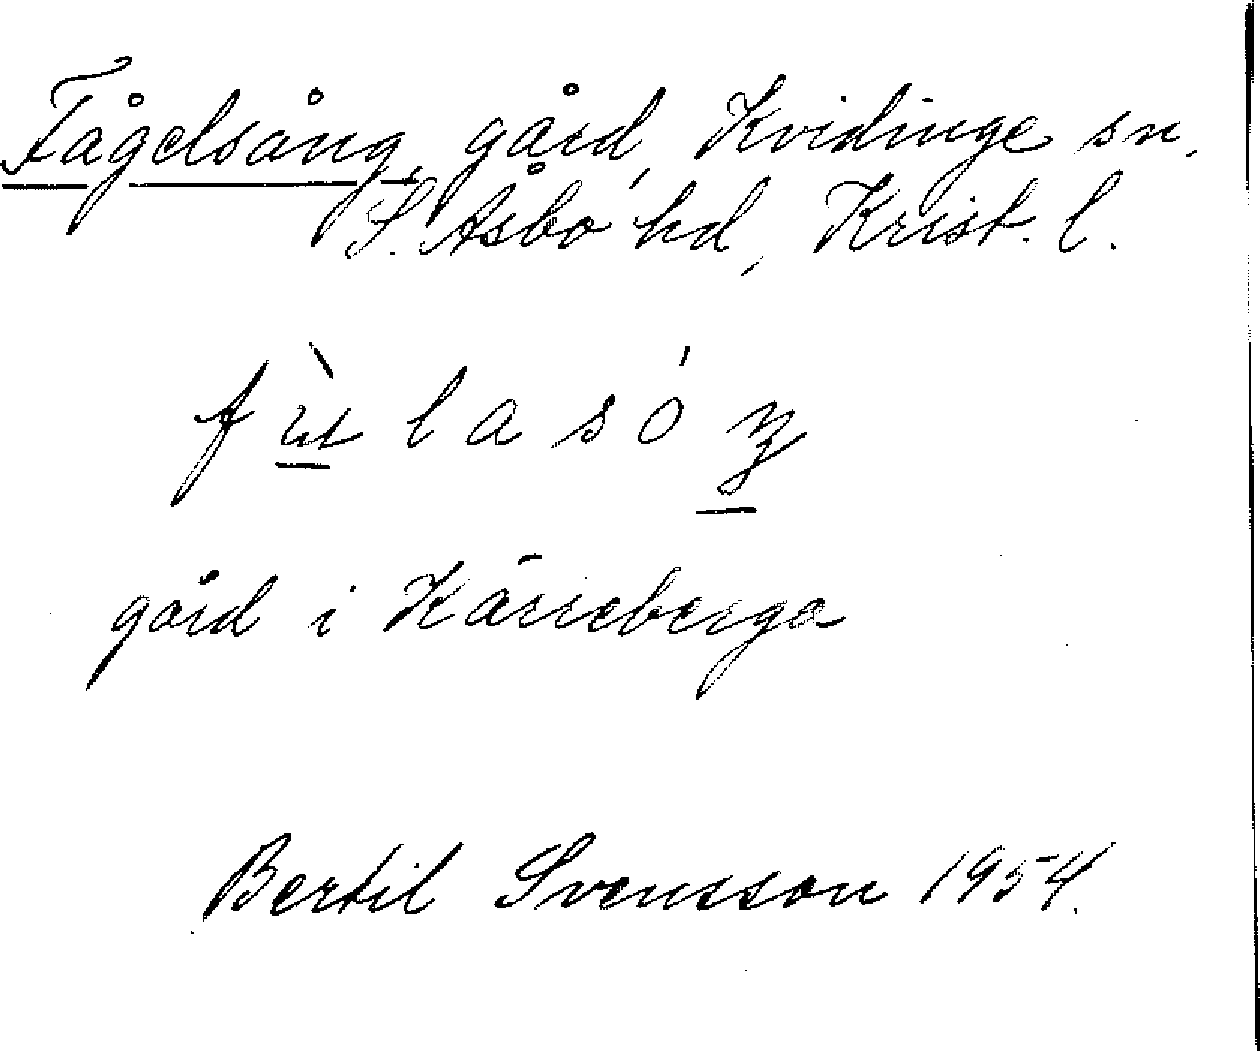 Fågelsång, gård, Kvidinge sn,
S. Åsbo hd, Krist. l.
gård i Kärreberga
Bertil Svensson 1954.